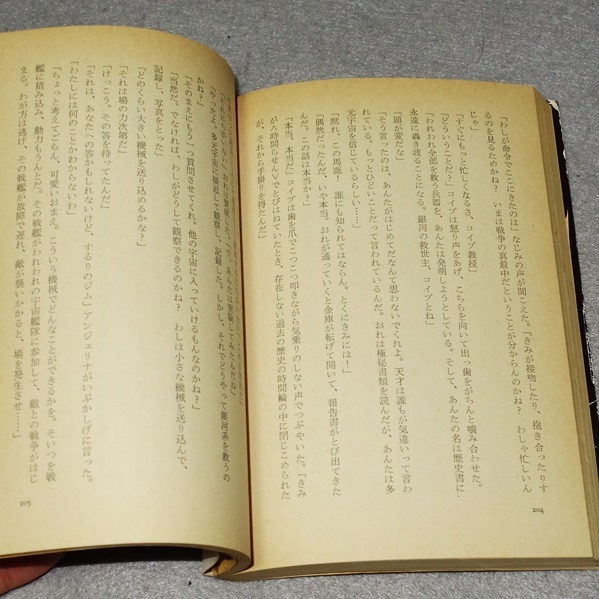 「わしが命令でここにきたのは」なじみの声が聞こえた。「きみが接吻したり、抱き合ったりす
るのを見るためかね？　いまは戦争の真最中だということが分からんのかね？　わしゃ忙しいん
じゃ」
「すぐにもっと忙しくなるさ、コイプ教授」
「どういうことだ？」コイプは怒り声をあげ、こちらを向いて出っ歯をがちんと噛み合わせた。
「われわれ全部を救う兵器を、あんたは発明しようとしている。そして、あんたの名は歴史書に
永遠に轟き渡ることになる。銀河の救世主、コイプとね」
「頭が変だな」
「そう言ったのは、あんたがはじめてだなんて思わないでくれよ。天才は誰もが気違いって言わ
れている。もっとひどいことだって言われているんだ。おれは極秘書類を読んだが、あんたは多
元宇宙を信じているらしい……」
「黙れ、この馬鹿！　誰にも知られてはならん。とくにきみには！」
「偶然だったんだ、いや本当。おれが通っていくと金庫が転げて開いて、報告書がとび出てきた
んだ。この話は本当か？」
「本当、本当だ」コイプは歯を爪でこつこつ叩きながら気乗りのしない声でつぶやいた。「きみ
が八時間らせんでとびはねていたとき、存在しない過去の歴史の時間輪の中に閉じこめられた
が、それから手掛りを得たんだ」
204
かね？」
「やったよ。多元宇宙に接近して観察し、記録した。しかし、それでどうやって銀河系を救うの
「そのまえにもう一つ質問させてくれ。他の宇宙に入っていけるもんなのかね？」
「当然だ。でなければ、わしがどうして観察できるのかね？　わしは小さな機械を送り込んで、
記録し、写真をとった」
「どのくらい大きい機械を送り込めるかな？」
「それは場の力次第だ」
「けっこう。その答を待ってたんだ」
「それは、あなたへの答かもしれないけど、するりのジム」アンジェリナがいぶかしげに言った。
「わたしには何のことかわからないわ」
「ちょっと考えてごらん、可愛いおまえ。こういう機械でどんなことができるかを。そいつを戦
艦に積み込み、動力もうんとだ。その戦艦がわれわれの宇宙艦隊に参加して、敵との戦争がはじ
まる。わが方は逃げ、その戦艦が故障で遅れ、敵が襲いかかると、場を発生させ……」
205